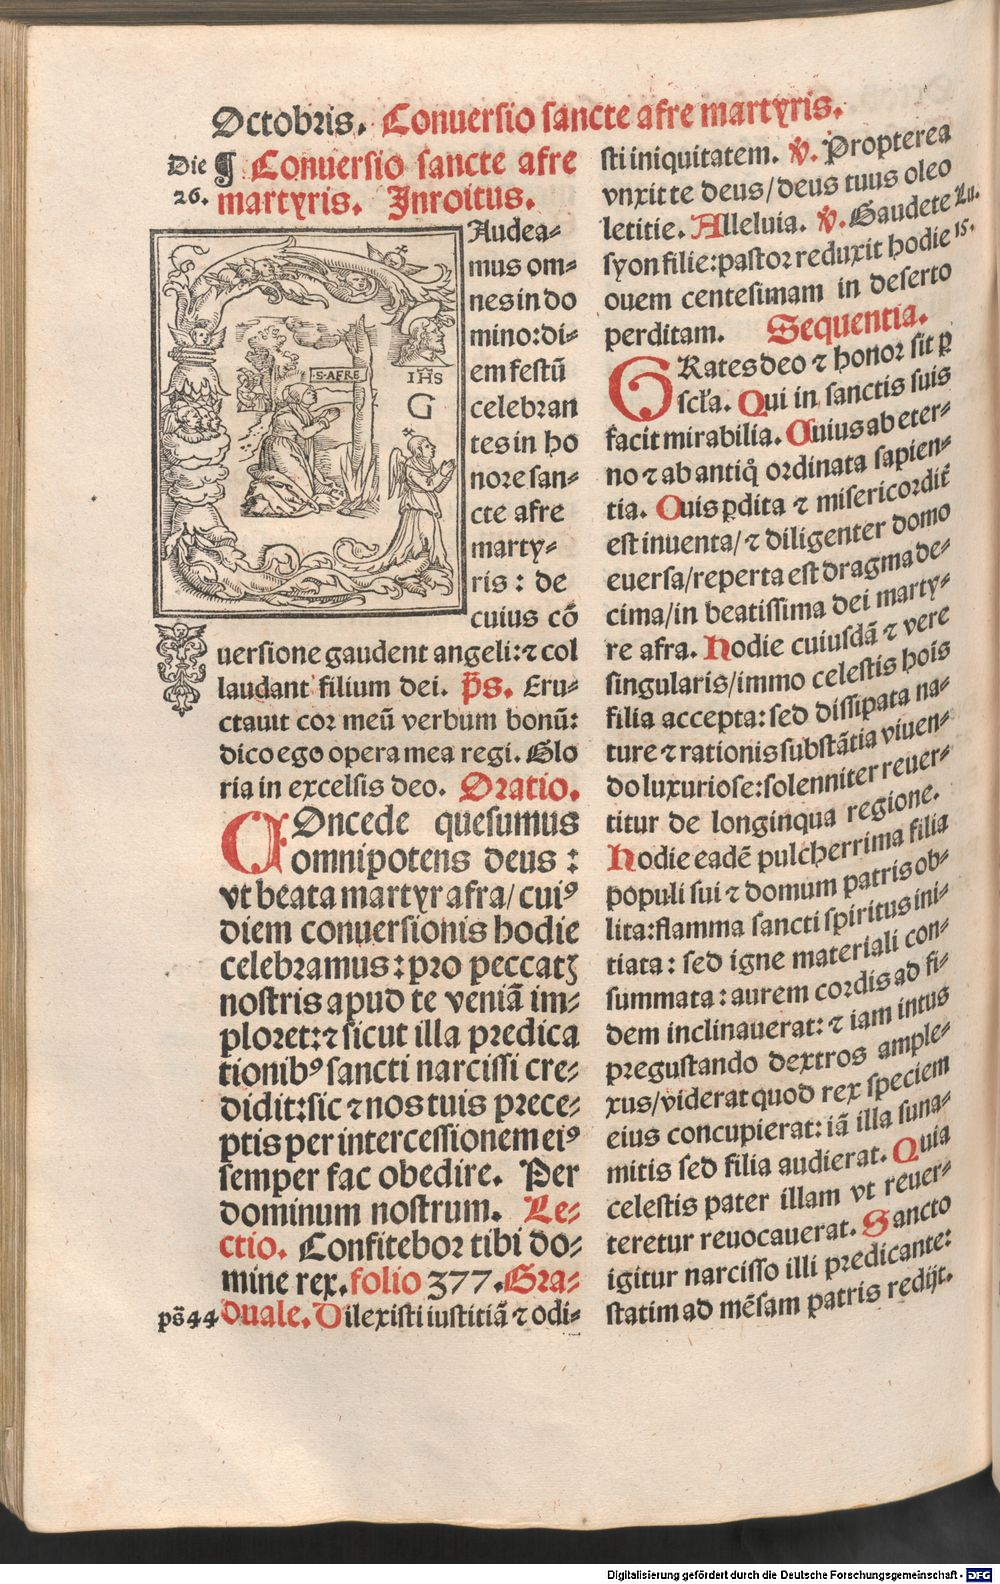 Octobris. Conuersio sancte afre martyris.
Die ¶ Conuersio sancte afre
26. martyris. Inroitus.
Audea⸗
mus om⸗
nes in do
mino: di⸗
em festū
celebran
tes in ho
nore san⸗
cte afre
marty⸗
ris : de
cuius cō
S·AFRE
IHS
G
uersione gaudent angeli: ⁊ col
laudant filium dei. p̄s. Eru⸗
ctauit cor meū verbum bonū:
dico ego opera mea regi. Glo
ria in excelsis deo. Oratio.
COncede quesumus
omnipotens deus :
vt beata martyr afra/ cuiꝰ
diem conuersionis hodie
celebramus: pro peccatꝫ
nostris apud te veniā im⸗
ploret: ⁊ sicut illa predica
tionibꝰ sancti narcissi cre⸗
didit: sic ⁊ nos tuis prece⸗
ptis per intercessionem eiꝰ
semper fac obedire. Per
dominum nostrum. Le⸗
ctio. Confitebor tibi do⸗
mine rex. folio 377. Gra⸗
ps̄ 44 duale. Dilexisti iustitiā ⁊ odi⸗
sti iniquitatem. ℣. Propterea
vnxit te deus/ deus tuus oleo
letitie. Alleluia. ℣. Gaudete Lu.
syon filie: pastor reduxit hodie 15.
ouem centesimam in deserto
perditam. Sequentia.
GRates deo ⁊ honor sit ꝑ
scl̄a. Qui in sanctis suis
facit mirabilia. Cuius ab eter⸗
no ⁊ ab antiq̊ ordinata sapien⸗
tia. Quis ꝑdita ⁊ misericordit̄
est inuenta/ ⁊ diligenter domo
euersa/ reperta est dragma de⸗
cima/ in beatissima dei marty⸗
re afra. Hodie cuiusdā ⁊ vere
singularis/ immo celestis hois
filia accepta: sed dissipata na⸗
ture ⁊ rationis substātia viuen⸗
do luxuriose: solenniter reuer⸗
titur de longinqua regione.
Hodie eadē pulcherrima filia
populi sui ⁊ domum patris ob⸗
lita: flamma sancti spiritus ini⸗
tiata : sed igne materiali con⸗
summata : aurem cordis ad fi⸗
dem inclinauerat: ⁊ iam intus
pregustando dextros ample⸗
xus/ viderat quod rex speciem
eius concupierat: iā illa suna⸗
mitis sed filia audierat. Quia
celestis pater illam vt reuer⸗
teretur reuocauerat. Sancto
igitur narcisso illi predicante:
statim ad mēsam patris redijt.
Digitalisierung gefördert durch die Deutsche Forschungsgemeinschaft - DFG